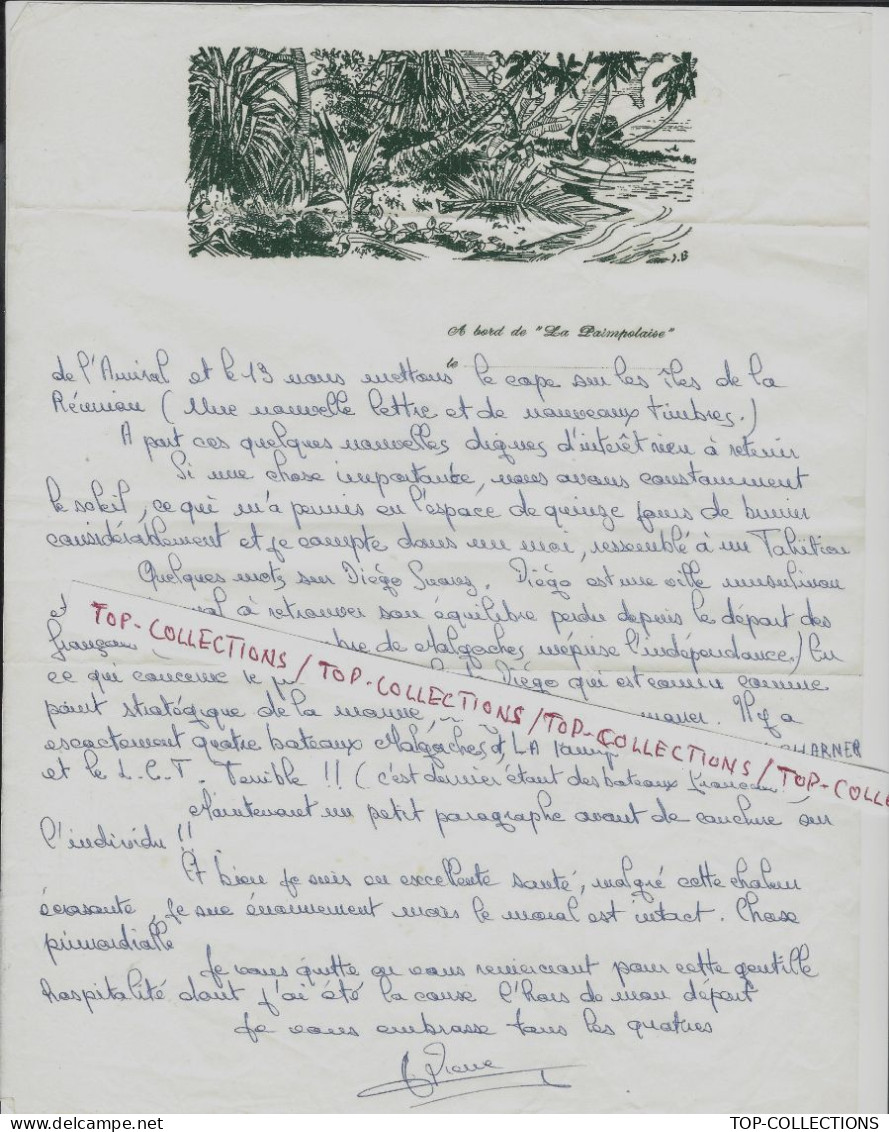 J.B
A bord de "La Paimpolaise"
le
de l'Amiral et le 13 nous mettons le cape sur les îles de la
Réunion (Une nouvelle lettre et de nouveaux timbres.)
A part ces quelques nouvelles dignes d'intérêt rien à retenir
Si une chose importante, nous avons constamment
le soleil, ce qui m'a permis en l'espace de quinze jours de brunir
considérablement et je compte dans un moi, ressemblé à un Tahïtien
Quelques mots sur Diégo Suarez. Diégo est une ville musulman
et al à retrouver son équilibre perdu depuis le départ des
français bre de Malgaches méprise l'indépendance.) En
ce qui concerne le Diégo qui est connu comme
point stratégique de la marine, Il y a
exactement quatre bateaux Malgaches, LA CHARNER
et le L.C.T. Terrible !! (c'est dernier étant des bateaux Français
Maintenant un petit paragraphe avant de conclure sur
l'individu !!
Et bien je suis en excellente santé, malgré cette chaleur
écrasante, je sue énormément mais le moral est intact. Chose
primordialle
Je vous quitte en vous remerciant pour cette gentille
hospitalité dont j'ai été la cause l'hors de mon départ
Je vous embrasse tous les quatres
Pierre
TOP-COLLECTIONS / TOP-COLLECTIONS / TOP-COLLECTIONS / TOP-COLLE
TOP-COLLECTIONS